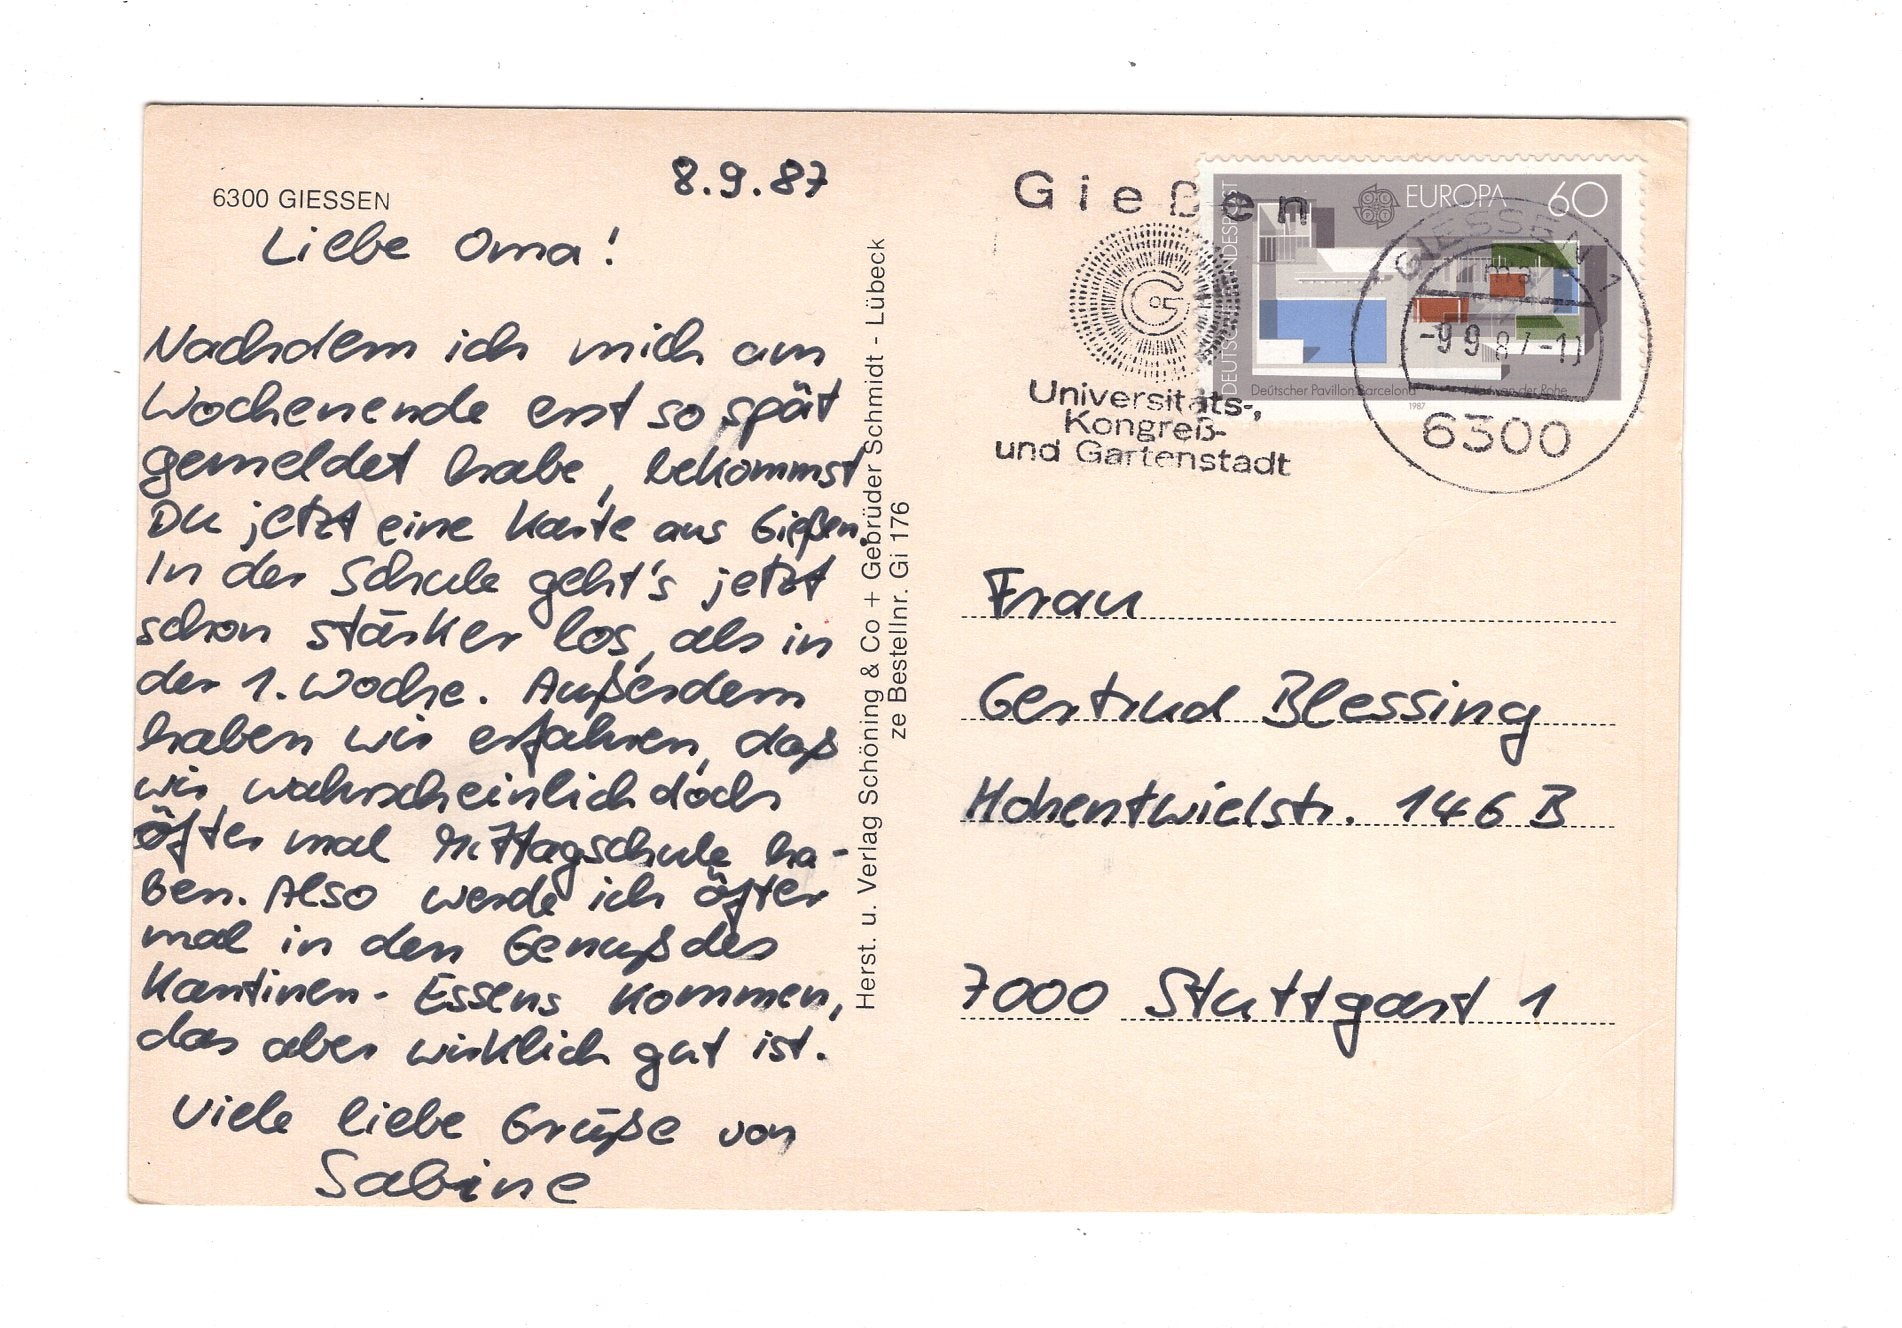 6300 GIESSEN
8.9.87
Liebe Oma!
Nachdem ich mich am
Wochenende erst so spät
gemeldet habe, bekommst
Du jetzt eine Karte aus Gießen.
In der Schule geht's jetzt
schon stärker los, als in
der 1. Woche. Außerdem
haben wir erfahren, daß
wir wahrscheinlich doch
öfter mal Mittagschule ha-
ben. Also werde ich öfter
mal in den Genuß des
Kantinen-Essens kommen,
das aber wirklich gut ist.
Viele liebe Grüße von
Sabine
Herst. u. Verlag Schöning & Co + Gebrüder Schmidt - Lübeck
ze Bestellnr. Gi 176
Gießen
Universitäts-,
Kongreß-
und Gartenstadt
DEUTSCHE BUNDESPOST
EUROPA 60
Deutscher Pavillon Barcelona
van der Rohe
1987
GIESSEN 1
-9.9.87-11
6300
Frau
Gertrud Blessing
Hohentwielstr. 146 B
7000 Stuttgart 1